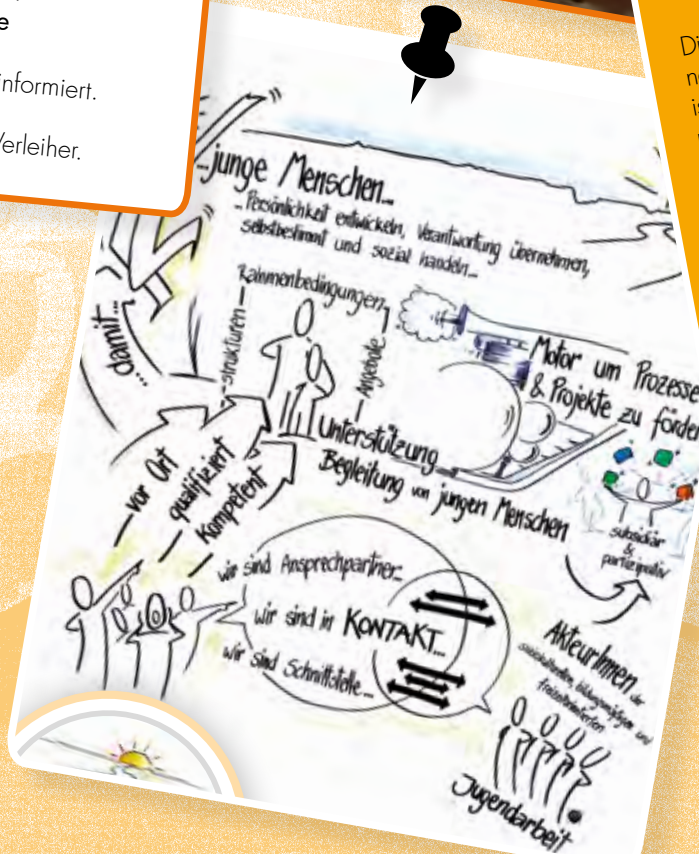 e
informiert.
Verleiher.
...junge Menschen...
... Persönlichkeit entwickeln, Verantwortung übernehmen,
selbstbestimmt und sozial handeln...
damit...
Rahmenbedingungen
strukturen
Angebote
Motor um Prozesse
& Projekte zu förder
Unterstützung
Begleitung von jungen Menschen
subsidiär
&
partizipativ
vor Ort
qualifiziert
kompetent
wir sind Ansprechpartner...
wir sind in KONTAKT...
wir sind Schnittstelle...
AkteurInnen der
und
Jugendarbeit